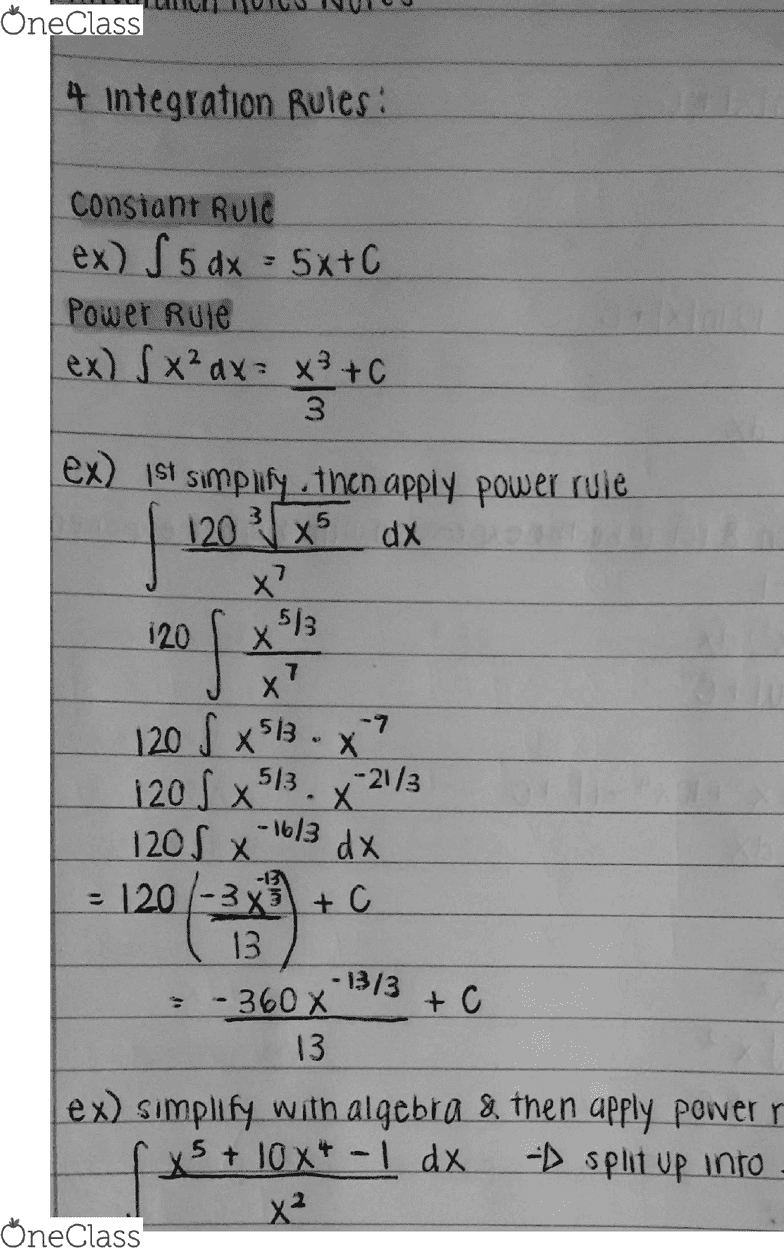 OneClass
Rules Notes
4 Integration Rules:
Constant Rule
ex) ∫ 5 dx = 5x+C
Power Rule
ex) ∫ x² dx = x³ + C
3
ex) 1st simplify, then apply power rule
∫ 120 ∛x⁵ dx
x⁷
120 ∫ x^5/3
x⁷
120 ∫ x^5/3 · x^-7
120 ∫ x^5/3 · x^-21/3
120 ∫ x^-16/3 dx
= 120 (-3x^-13/3) + C
13
= -360x^-13/3 + C
13
ex) simplify with algebra & then apply power r
∫ x⁵ + 10x⁴ - 1 dx → split up into
x²
OneClass